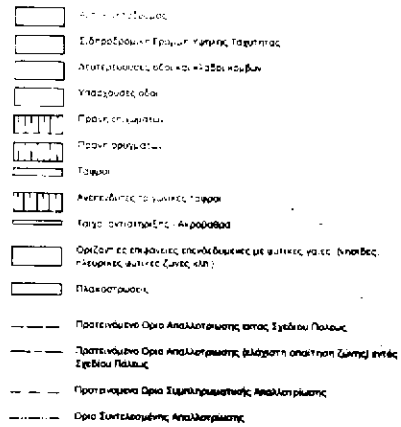 Σιδηροδρομική Γραμμή Υψηλής Ταχύτητας
Δευτερεύουσες οδοί και κλάδοι κόμβων
Υπάρχουσες οδοί
Πρανή επιχωμάτων
Πρανή ορυγμάτων
Τάφροι
Ανεπένδυτες τριγωνικές τάφροι
Τοίχοι αντιστήριξης - Ακρόβαθρα
Οριζόντιες επιφάνειες επενδεδυμένες με φυτικές γαίες (νησίδες,
πλευρικές φυτικές ζώνες κλπ.)
Πλακοστρώσεις
Προτεινόμενο Όριο Απαλλοτρίωσης εκτός Σχεδίου Πόλεως
Προτεινόμενο Όριο Απαλλοτρίωσης (ελάχιστη απαίτηση ζώνης) εντός
Σχεδίου Πόλεως
Προτεινόμενο Όριο Συμπληρωματικής Απαλλοτρίωσης
Όριο Συντελεσμένης Απαλλοτρίωσης